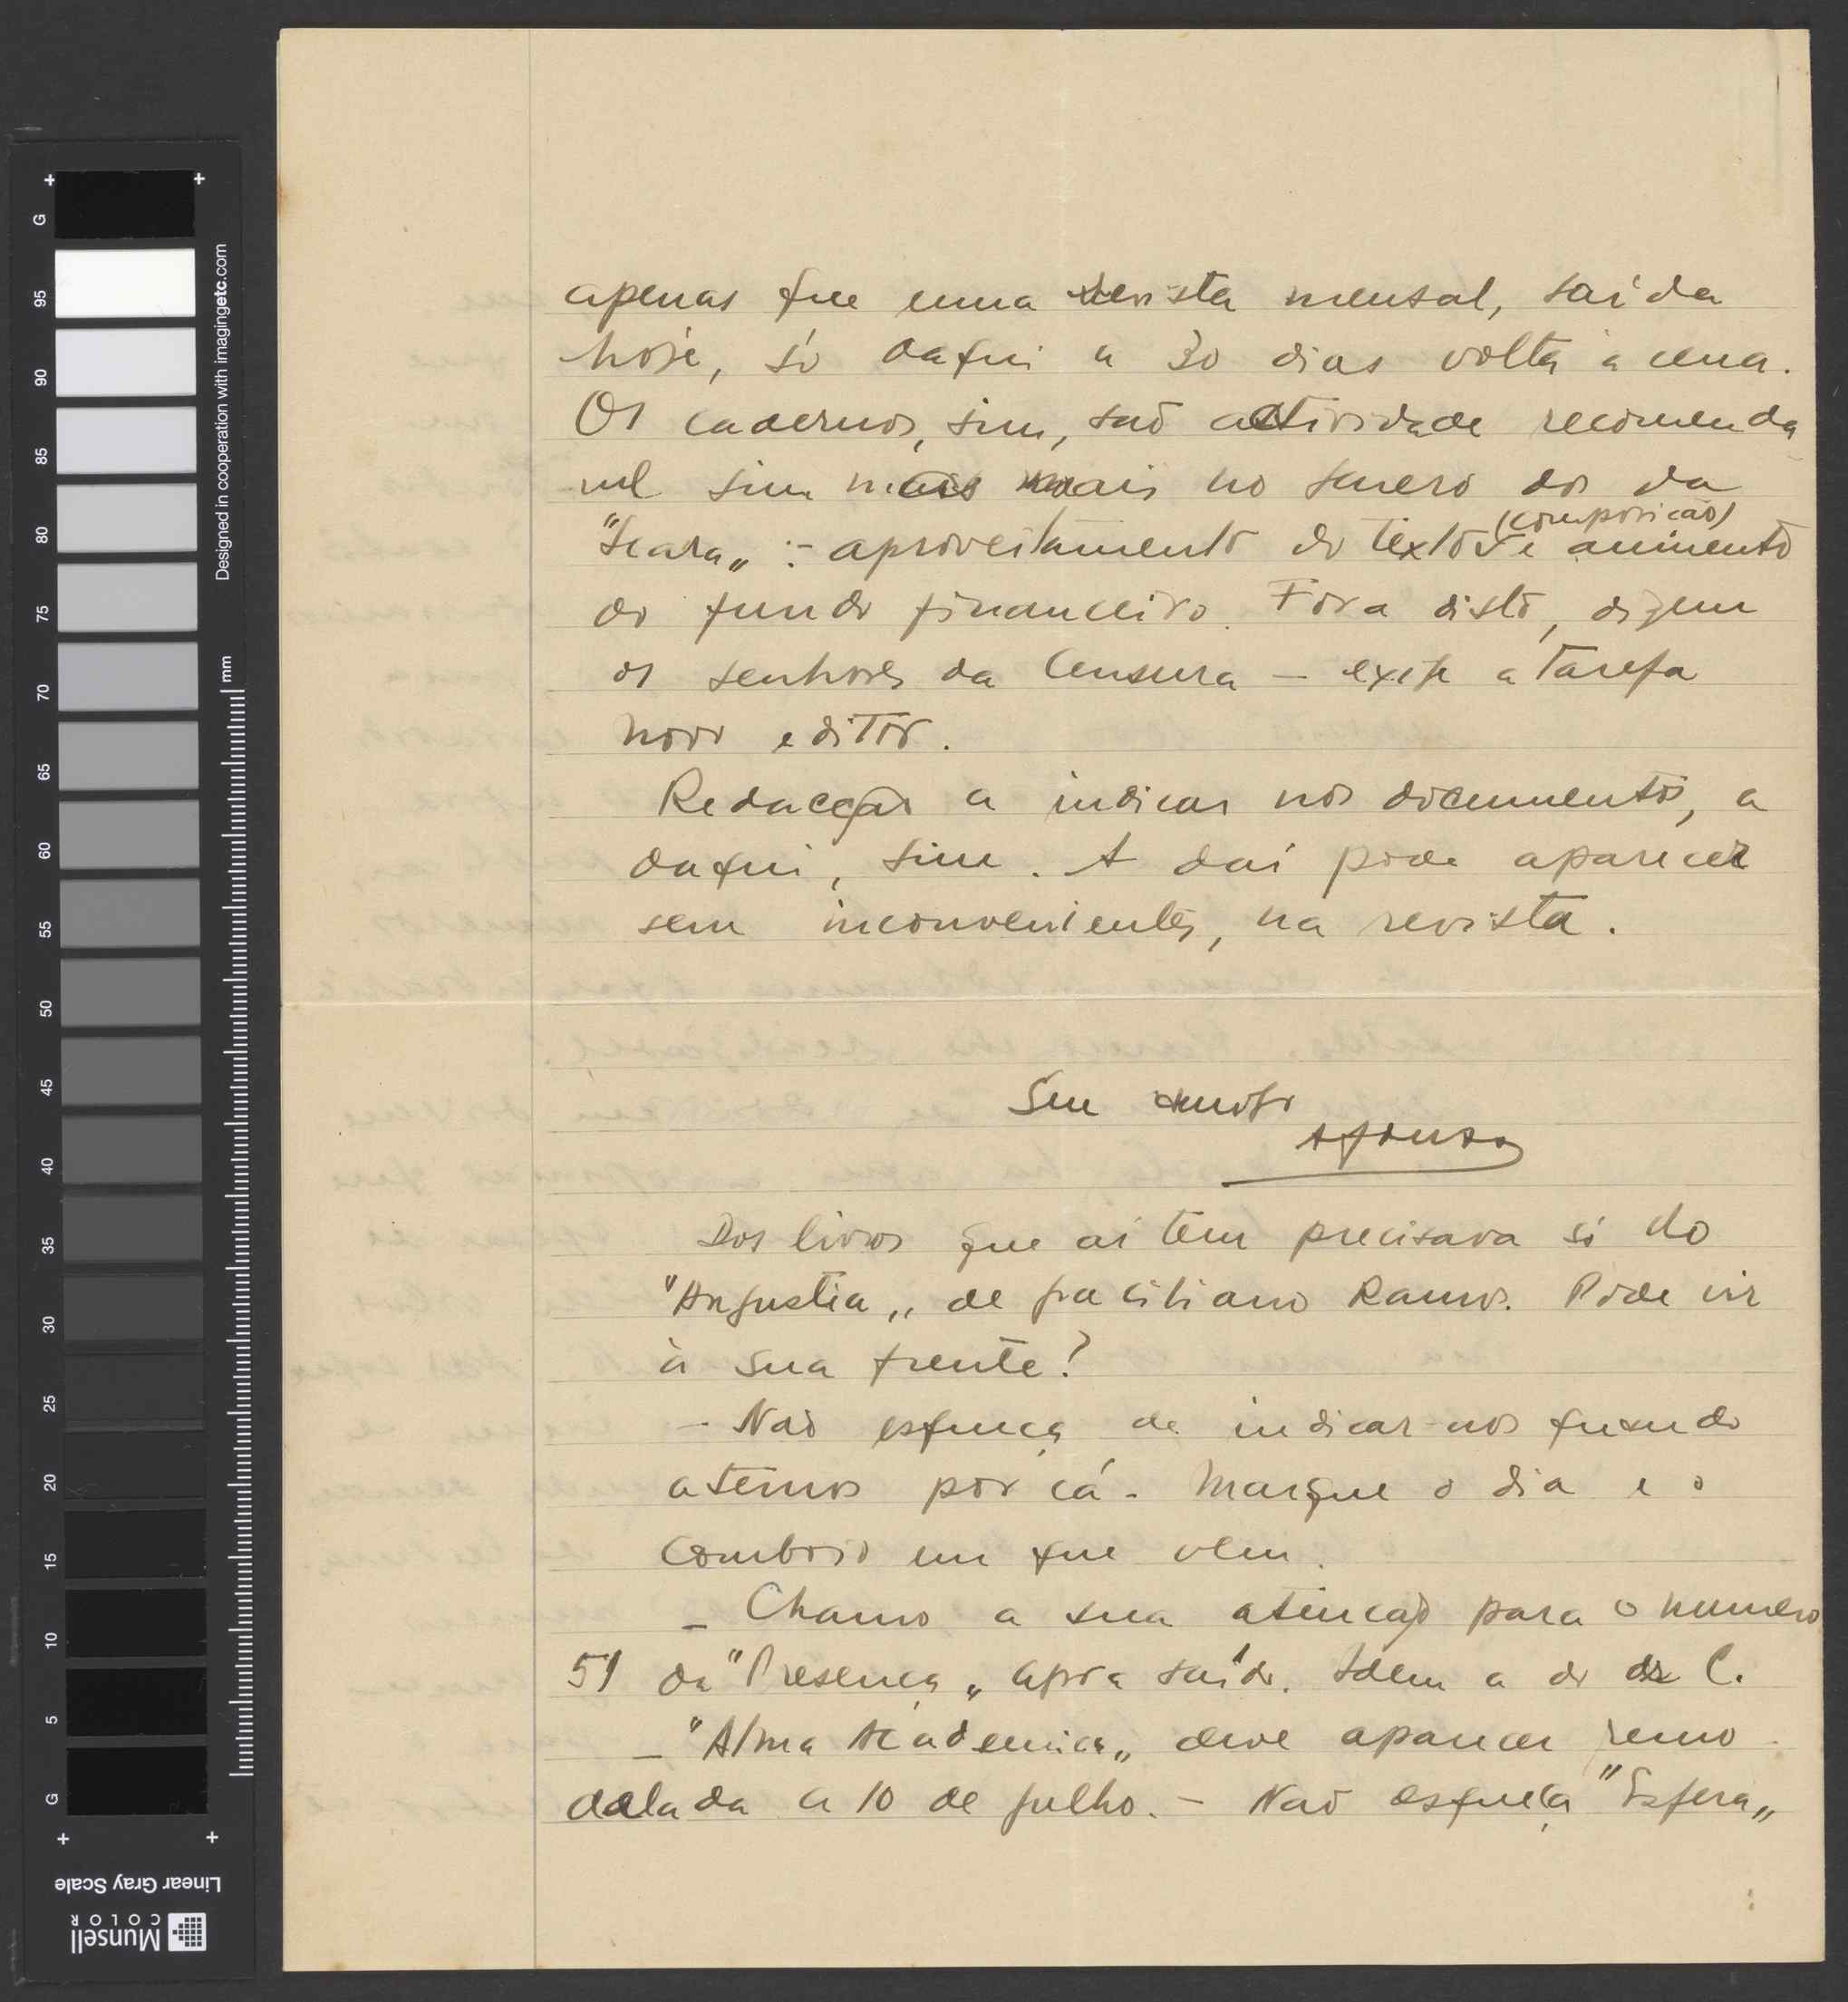 apenas que uma revista mensal, saída
hoje, só daqui a 30 dias volta à cena.
Os cadernos, sim, são actividade recomendá
vel sim mas mais no género dos da
"Seara„ :- aproveitamento do texto (composição) e aumento
do fundo financeiro. Fora disto, dizem
os senhores da Censura — exige a tarefa
novo editor.
Redacção a indicar nos documentos, a
daqui, sim. A daí pode aparecer
sem inconvenientes, na revista.
Seu amigo
Afonso
Dos livros que aí tem precisava só do
"Angustia„ de Graciliano Ramos. Pode vir
à sua frente?
- Não esqueça de indicar-nos quando
a temos por cá. Marque o dia e o
comboio em que vem.
- Chamo a sua atenção para o numero
51 da "Presença„ agora saído. Idem a do dr C.
- "Alma Academica„ deve aparecer remo
delada a 10 de Julho. - Não esqueça "Esfera„
G
95
90
85
80
75
70
65
60
55
50
45
40
35
30
25
20
15
10
5
G
mm
Designed in cooperation with imagingetc.com
Linear Gray Scale
Munsell
COLOR